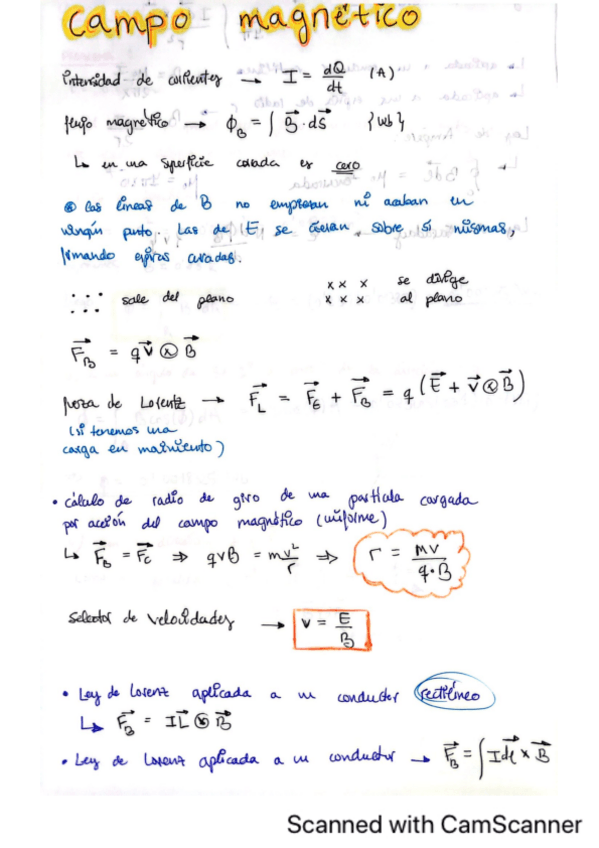 campo magnético
intensidad de corrientes → I = dQ/dt (A)
flujo magnético → ϕ_B = ∫ B⃗ · dS⃗ {Wb}
↳ en una superficie cerrada es cero
⊛ las líneas de B no empiezan ni acaban en
ningún punto. Las de |E, se cierran sobre sí mismas,
formando espiras cerradas.
: : : sale del plano
x x x se dirige
x x x al plano
F⃗_B = q v⃗ ⊗ B⃗
fuerza de Lorentz → F⃗_L = F⃗_E + F⃗_B = q (E⃗ + v⃗ ⊗ B⃗)
(si tenemos una
carga en movimiento)
• cálculo de radio de giro de una partícula cargada
por acción del campo magnético (uniforme)
↳ F⃗_B = F⃗_C ⇒ qvB = m v²/r ⇒ r = mv/q·B
Selector de velocidades → v = E/B
• Ley de Lorenz aplicada a un conductor rectilíneo
↳ F⃗_B = I L⃗ ⊗ B⃗
• Ley de Lorenz aplicada a un conductor → F⃗_B = ∫ I dl⃗ x B⃗
Scanned with CamScanner